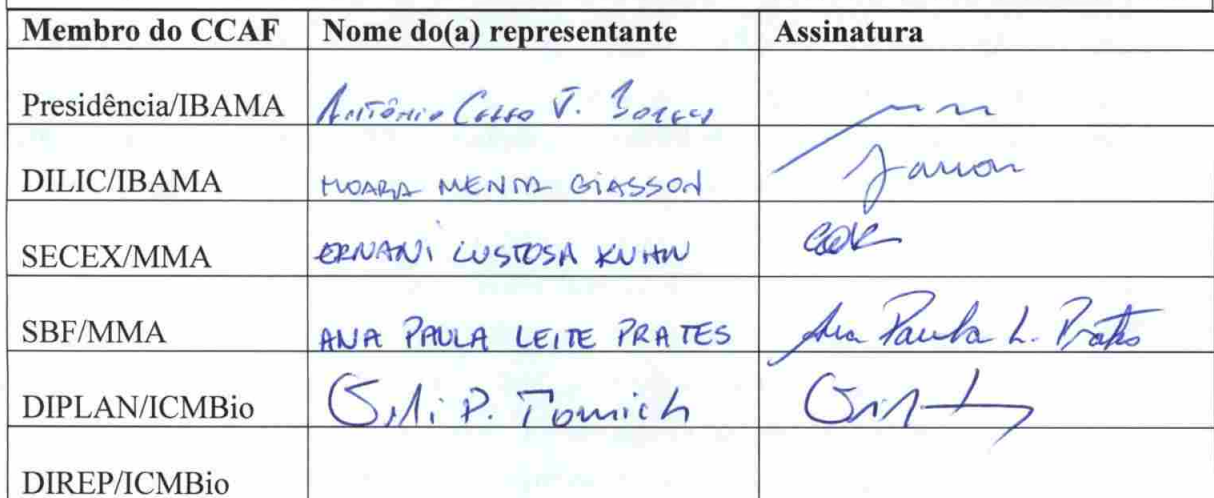 Membro do CCAF Nome do(a) representante Assinatura
Presidência/IBAMA Antônio Celso J. Borges
DILIC/IBAMA MOARA MENTA GIASSON
SECEX/MMA ERNANI LUSTOSA KUHN
SBF/MMA ANA PAULA LEITE PRATES Ana Paula L. Prates
DIPLAN/ICMBio P. Tomich
DIREP/ICMBio